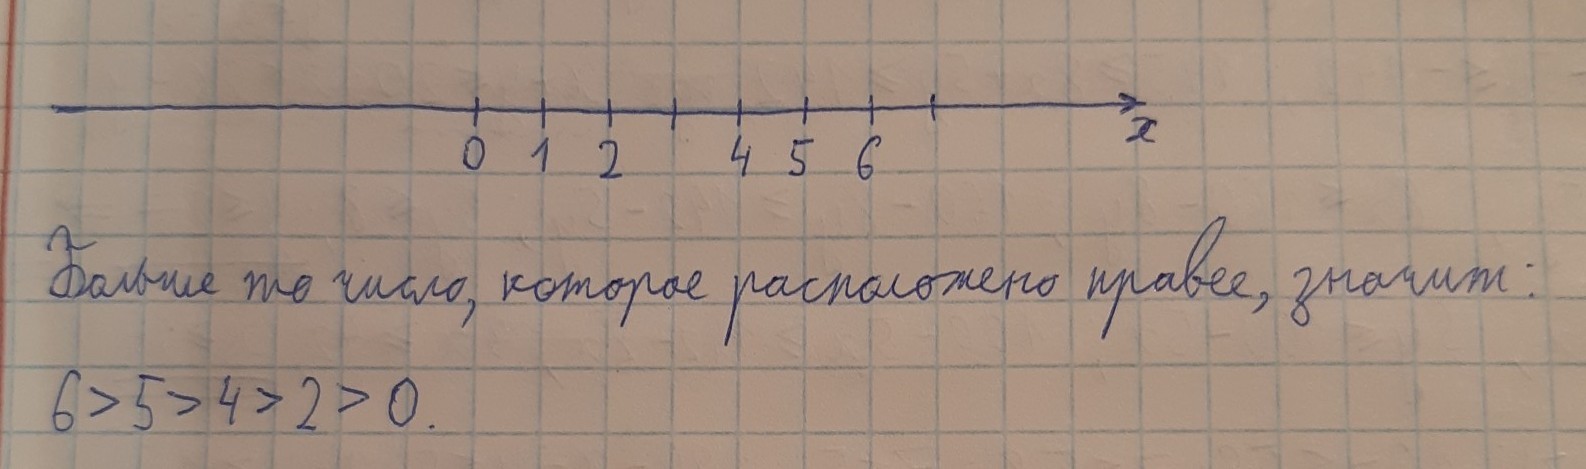 0 1 2 4 5 6 x
Больше то число, которое расположено правее, значит:
6 > 5 > 4 > 2 > 0.